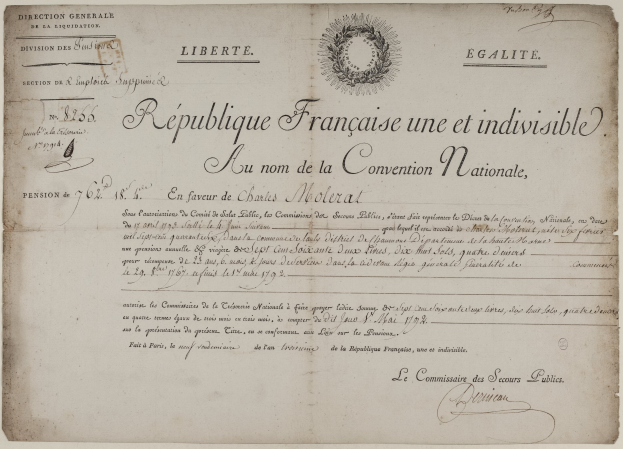 DIRECTION GENERALE
DE LA LIQUIDATION.
DIVISION DES Pensions
SECTION DE L'Emploiés Supprimés
LIBERTE.
EGALITE.
n° 8256
République Française une et indivisible.
Au nom de la Convention Nationale,
PENSION DE 762 18. 4. En faveur de Charles Molerat
Sous l'autorisation du Comité de Salut Public, les Commissions des Secours Publics, s'étant fait représenter le Décret de la Convention Nationale, en date
du 1793
mil Sept cent quarante dans la commune de district de Chaumont Département de la haute Marne
une pension annuelle & viagère de Sept Cent Soixante deux Livres, Dix huit Sols, quatre deniers
pour récompense de 23 ans, 6 mois, 4 jours de Services dans la générale
le 29. 8bre 1767. 1er 1792.
autorise les Commissaires de la Trésorerie Nationale à faire payer ladite somme de Sept cent soixante deux livres, dix huit sols, quatre deniers
en quatre termes égaux de trois mois en trois mois, à compter du dit jour 1er Mai 1792.
sur la présentation du présent Titre, en se conformant aux Loix sur les Pensions.
Fait à Paris, le neuf vendemiaire de l'an troisieme de la République Française, une et indivisible.
Le Commissaire des Secours Publics.